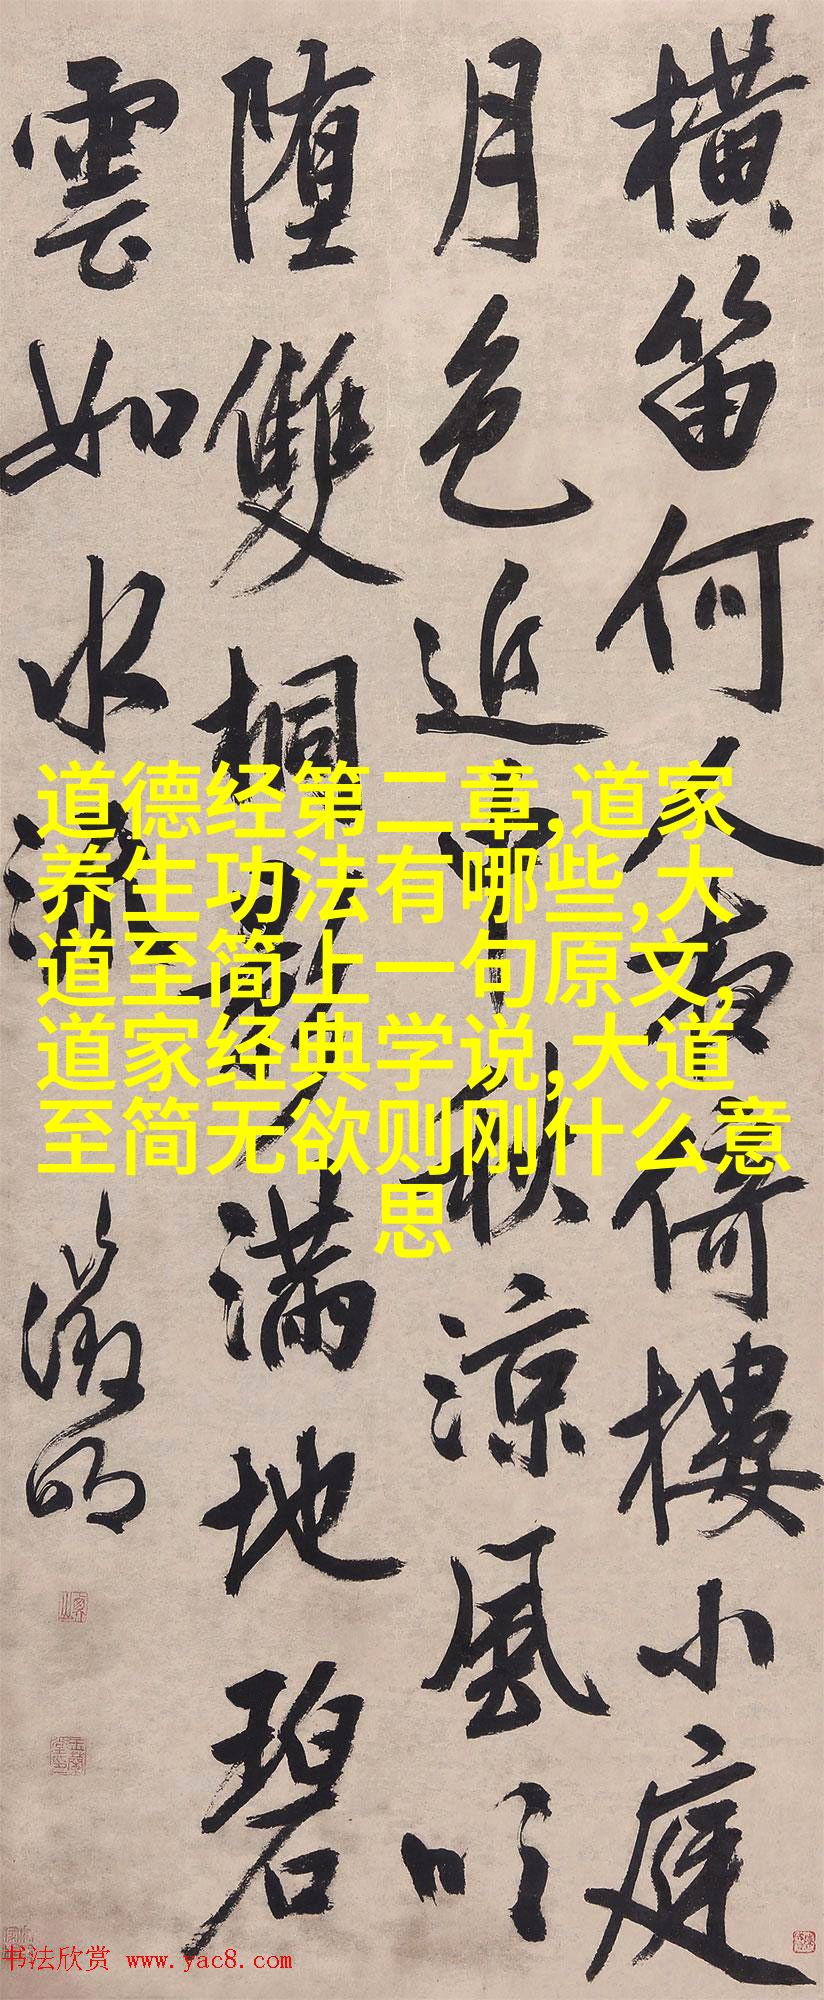 橫笛何人夜倚樓小庭
月色近中秋涼風吹
堕雙桐影滿地碧
雲如水流
徵明
道德经第二章,道家
养生功法有哪些,大
道至简上一句原文,
道家经典学说,大道
至简无欲则刚什么意
思
书法欣赏 www.yac8.com